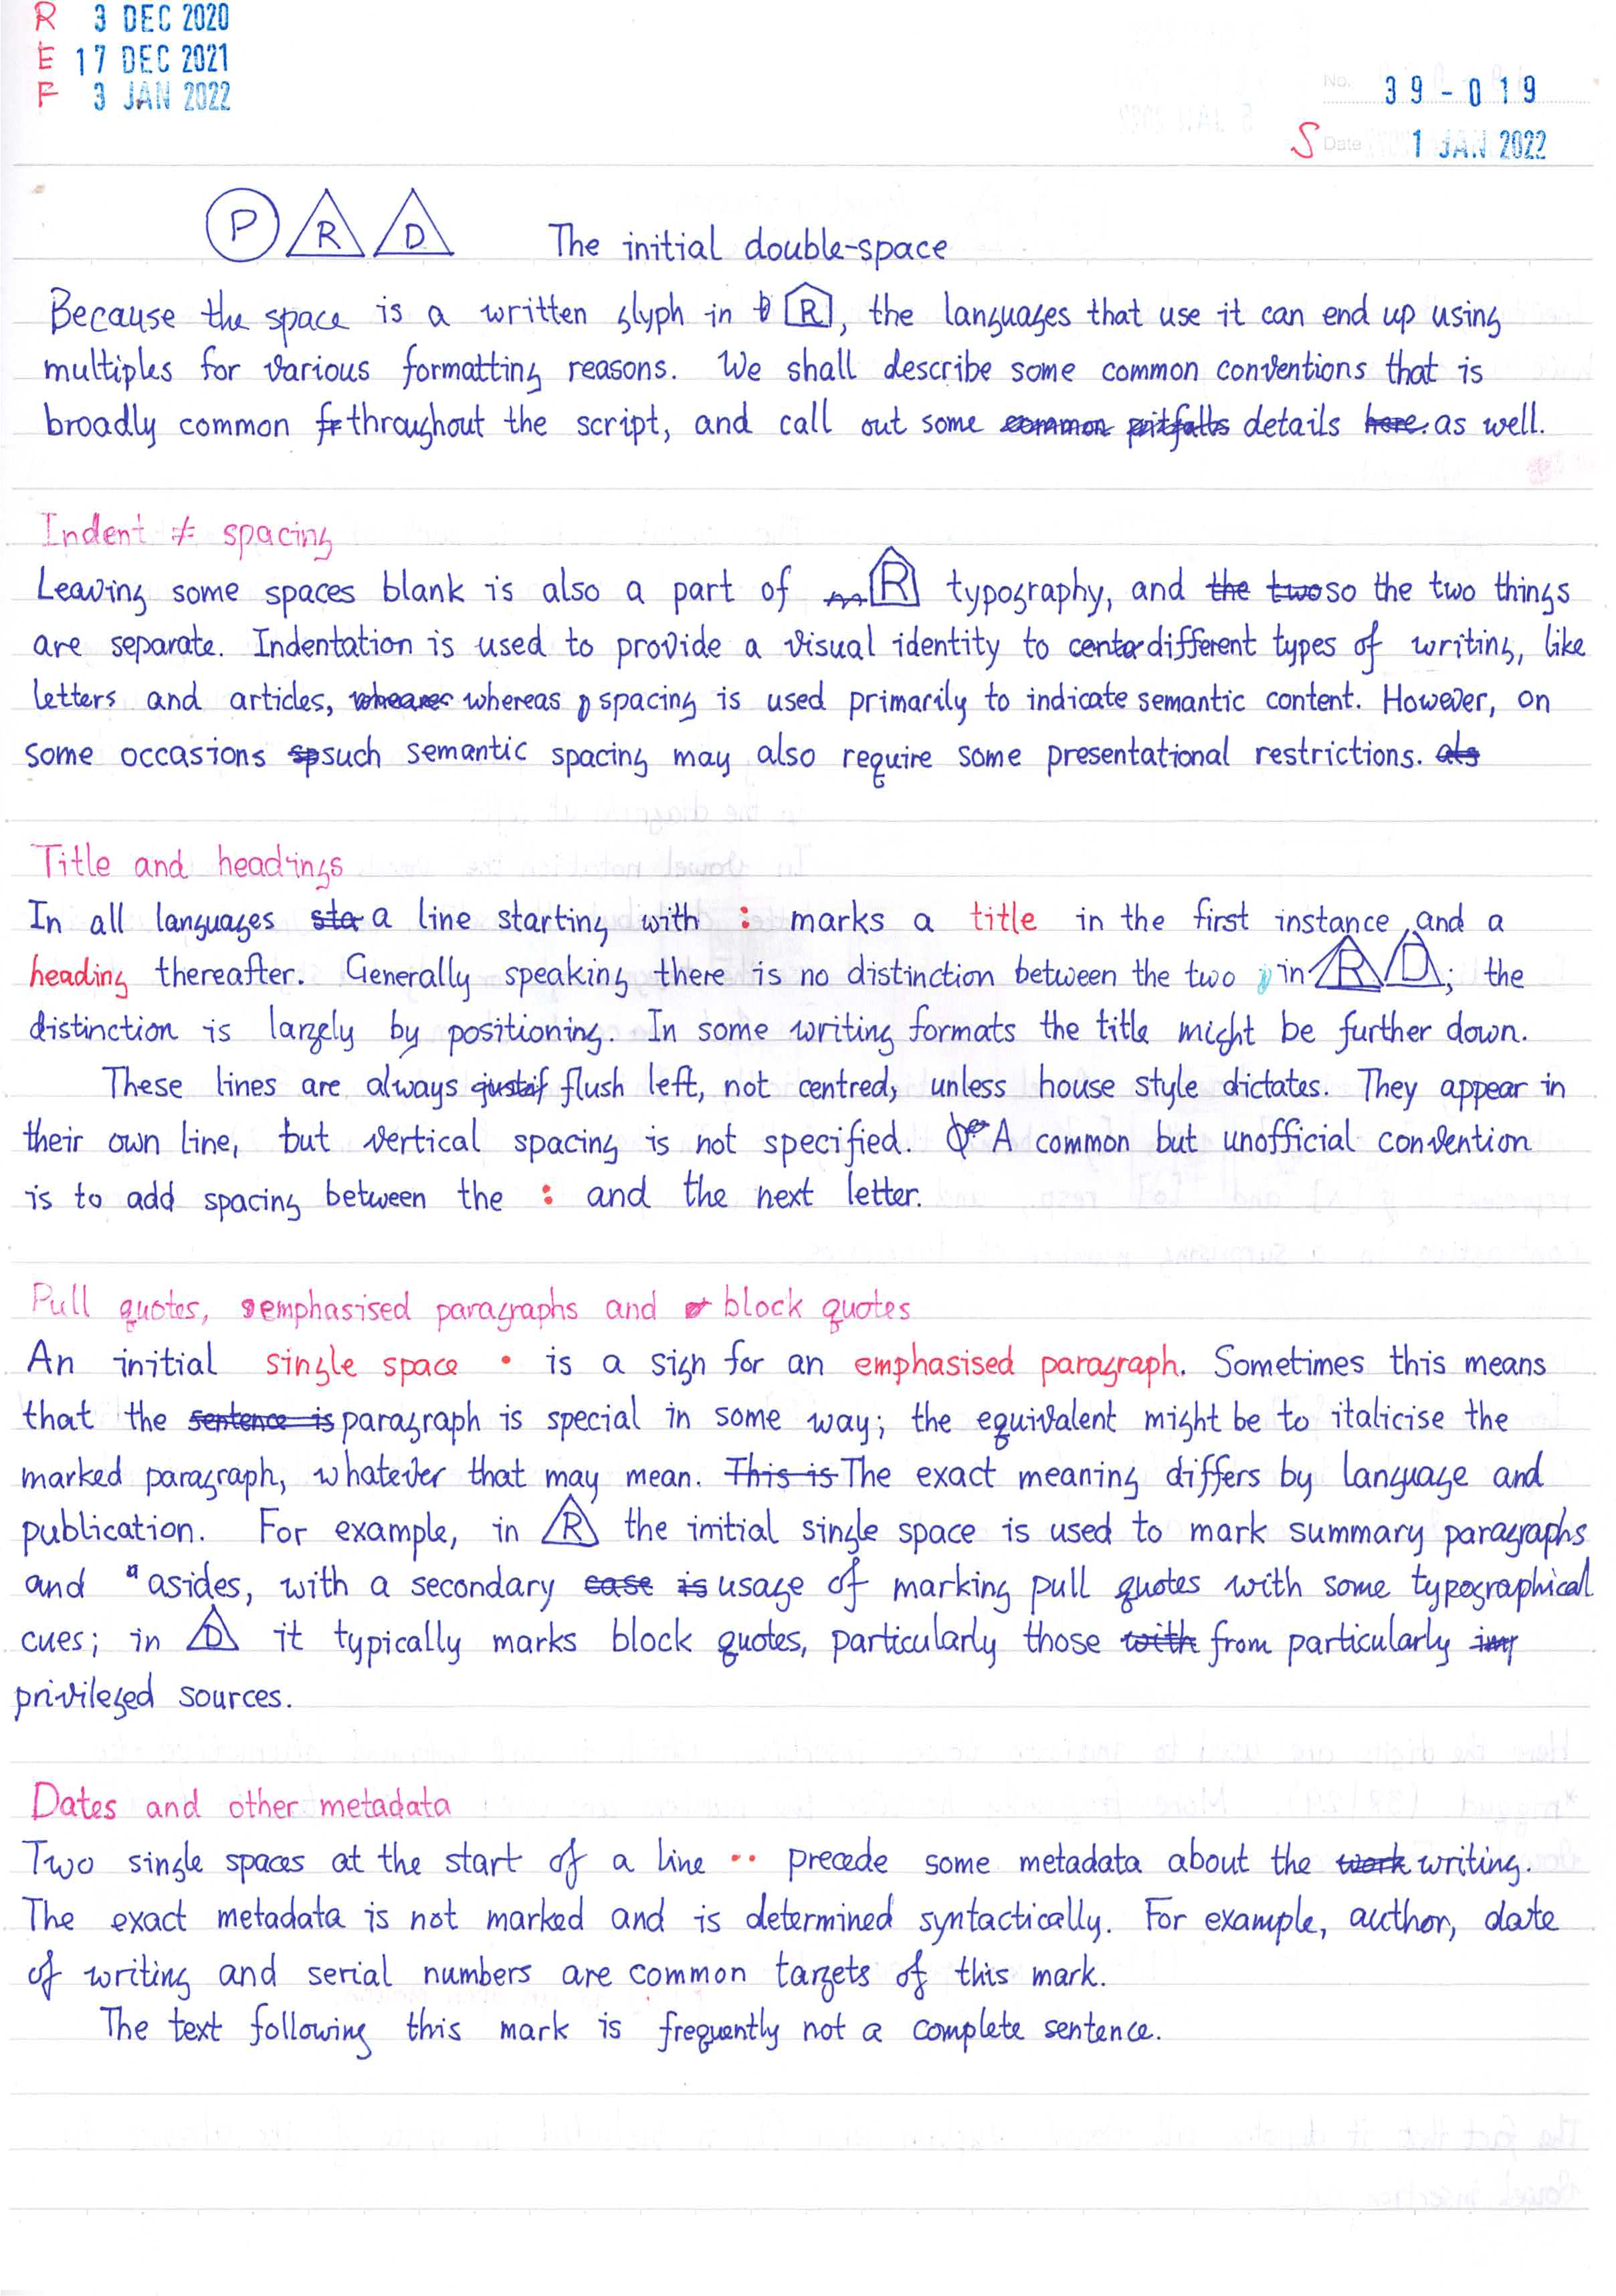 R 3 DEC 2020
E 17 DEC 2021
F 3 JAN 2022
No. 39-019
S Date 1 JAN 2022
P R D The initial double-space
Because the space is a written glyph in R, the languages that use it can end up using
multiples for various formatting reasons. We shall describe some common conventions that is
broadly common fr throughout the script, and call out some common pitfalls details here. as well.
Indent ≠ spacing
Leaving some spaces blank is also a part of R typography, and the two so the two things
are separate. Indentation is used to provide a visual identity to different types of writing, like
letters and articles, whereas spacing is used primarily to indicate semantic content. However, on
some occasions sp such semantic spacing may also require some presentational restrictions. als
Title and headings
In all languages sta a line starting with : marks a title in the first instance, and a
heading thereafter. Generally speaking there is no distinction between the two in R D; the
distinction is largely by positioning. In some writing formats the title might be further down.
These lines are always justif flush left, not centred, unless house style dictates. They appear in
their own line, but vertical spacing is not specified. A common but unofficial convention
is to add spacing between the : and the next letter.
Pull quotes, emphasised paragraphs and block quotes
An initial single space • is a sign for an emphasised paragraph. Sometimes this means
that the sentence is paragraph is special in some way; the equivalent might be to italicise the
marked paragraph, whatever that may mean. This is The exact meaning differs by language and
publication. For example, in R the initial single space is used to mark summary paragraphs
and asides, with a secondary case is usage of marking pull quotes with some typographical
cues; in D it typically marks block quotes, particularly those with from particularly imp
privileged sources.
Dates and other metadata
Two single spaces at the start of a line •• precede some metadata about the work writing.
The exact metadata is not marked and is determined syntactically. For example, author, date
of writing and serial numbers are common targets of this mark.
The text following this mark is frequently not a complete sentence.